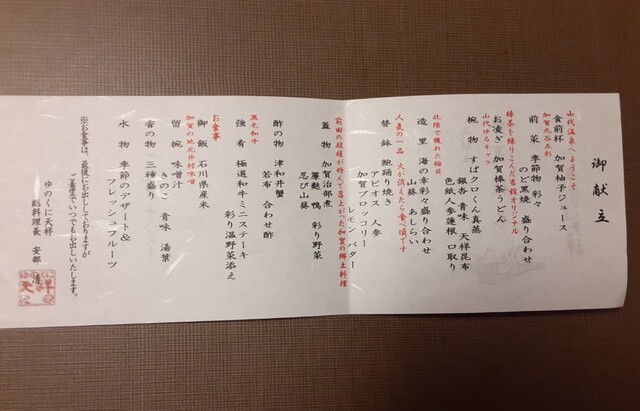 御献立
山代温泉へようこそ
食前杯 加賀柚子ジュース
加賀九谷五彩
前菜 季節物 彩々
のど黒焼 盛り合わせ
棒茶を練りこんだ当館オリジナル
お凌ぎ 加賀棒茶うどん
山代ゆるキャラ
椀物 すぱクロくん真蒸
銀杏 青味 天祥昆布
色紙人参蓮根 口取り
北陸で獲れた梅貝
造里 海の幸彩々盛り合わせ
山葵 あしらい
人気の一品 火が消えたら食べ頃です
替鉢 鮑踊り焼き
アピオス 人参
加賀ブロッコリー
レモン バター
前田の殿様が好んで召上がった加賀の郷土料理
蓋物 加賀治部煮
簾麩 鴨 彩り野菜
忍び山葵
酢の物 津和井蟹
若布 合わせ酢
黒毛和牛
強肴 極選和牛ミニステーキ
彩り温野菜添え
お食事
御飯 石川県産米
加賀の地元井村味噌
留椀 味噌汁
きのこ 青味 湯葉
香の物 三種盛り
水物 季節のデザート&
フレッシュフルーツ
※お食事は、最後にお出ししておりますが
ご希望でいつでもお出しいたします。
ゆのくに天祥
総料理長 安部 清